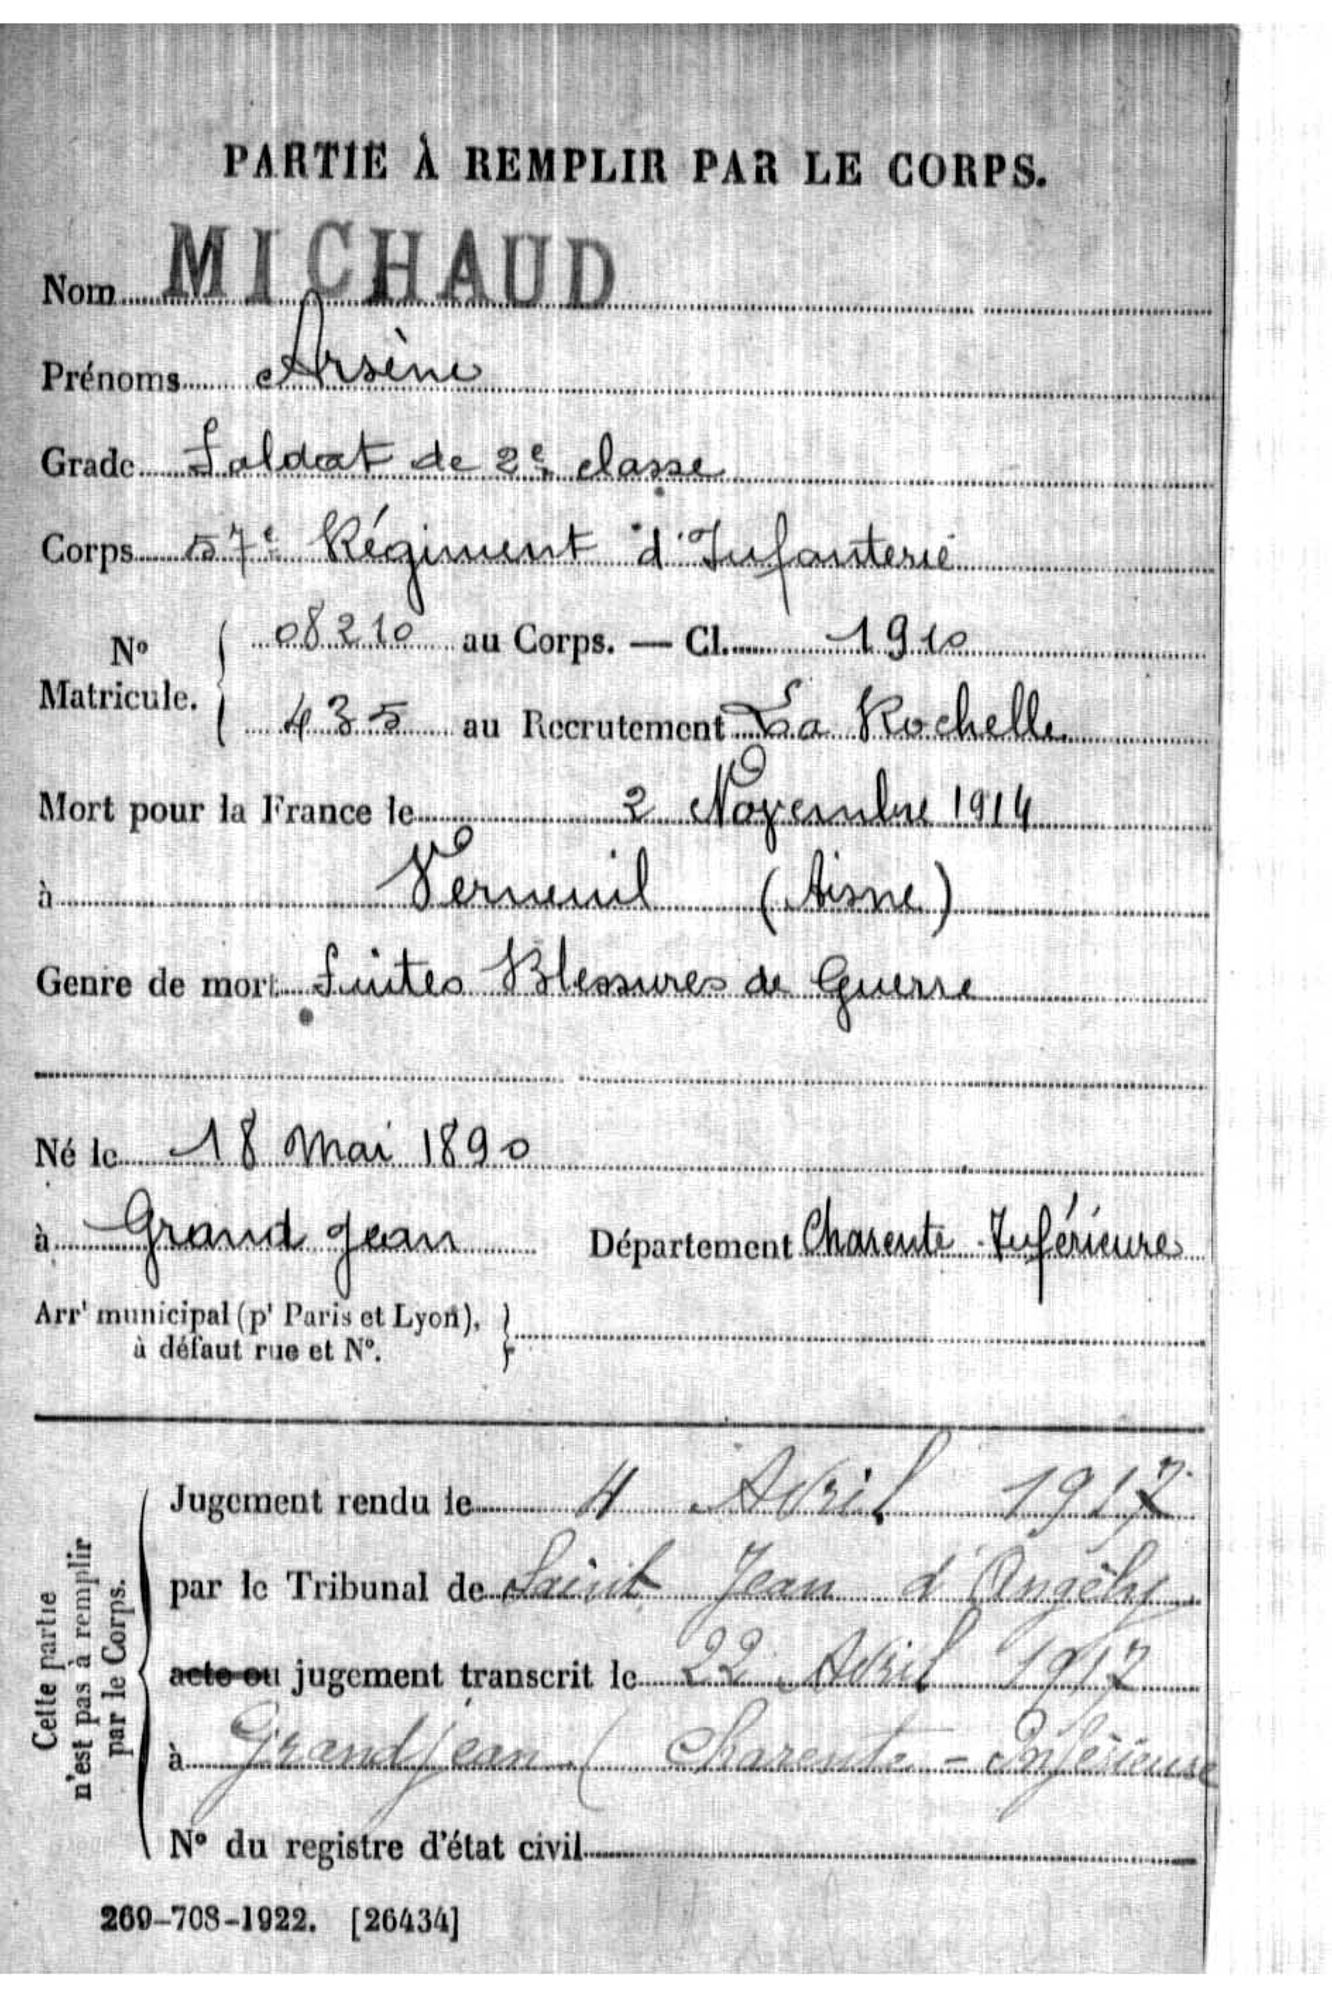 PARTIE À REMPLIR PAR LE CORPS.
Nom MICHAUD
Prénoms Arsène
Grade Soldat de 2e classe
Corps 57e Régiment d'Infanterie
No Matricule. { 08210 au Corps. — Cl. 1910
435 au Recrutement La Rochelle
Mort pour la France le 2 Novembre 1914
à Verneuil (Aisne)
Genre de mort Suites Blessures de Guerre
Né le 18 Mai 1890
à Grand Jean Département Charente-Inférieure
Arrt municipal (pr Paris et Lyon),
à défaut rue et No.
Cette partie
n'est pas à remplir
par le Corps.
Jugement rendu le 4 Avril 1917
par le Tribunal de Saint Jean d'Angély
acte ou jugement transcrit le 22 Avril 1917
à Grandjean (Charente-Inférieure
No du registre d'état civil
269-708-1922. [26434]